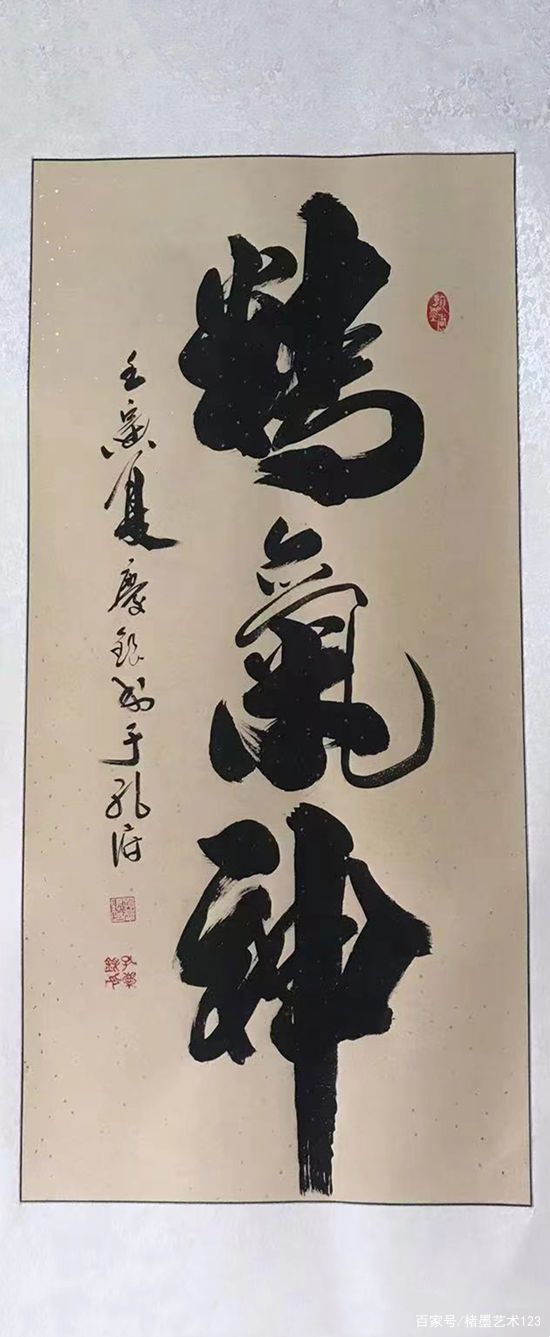 精氣神
壬寅夏慶銀書于孔府
百家号/楮墨艺术123